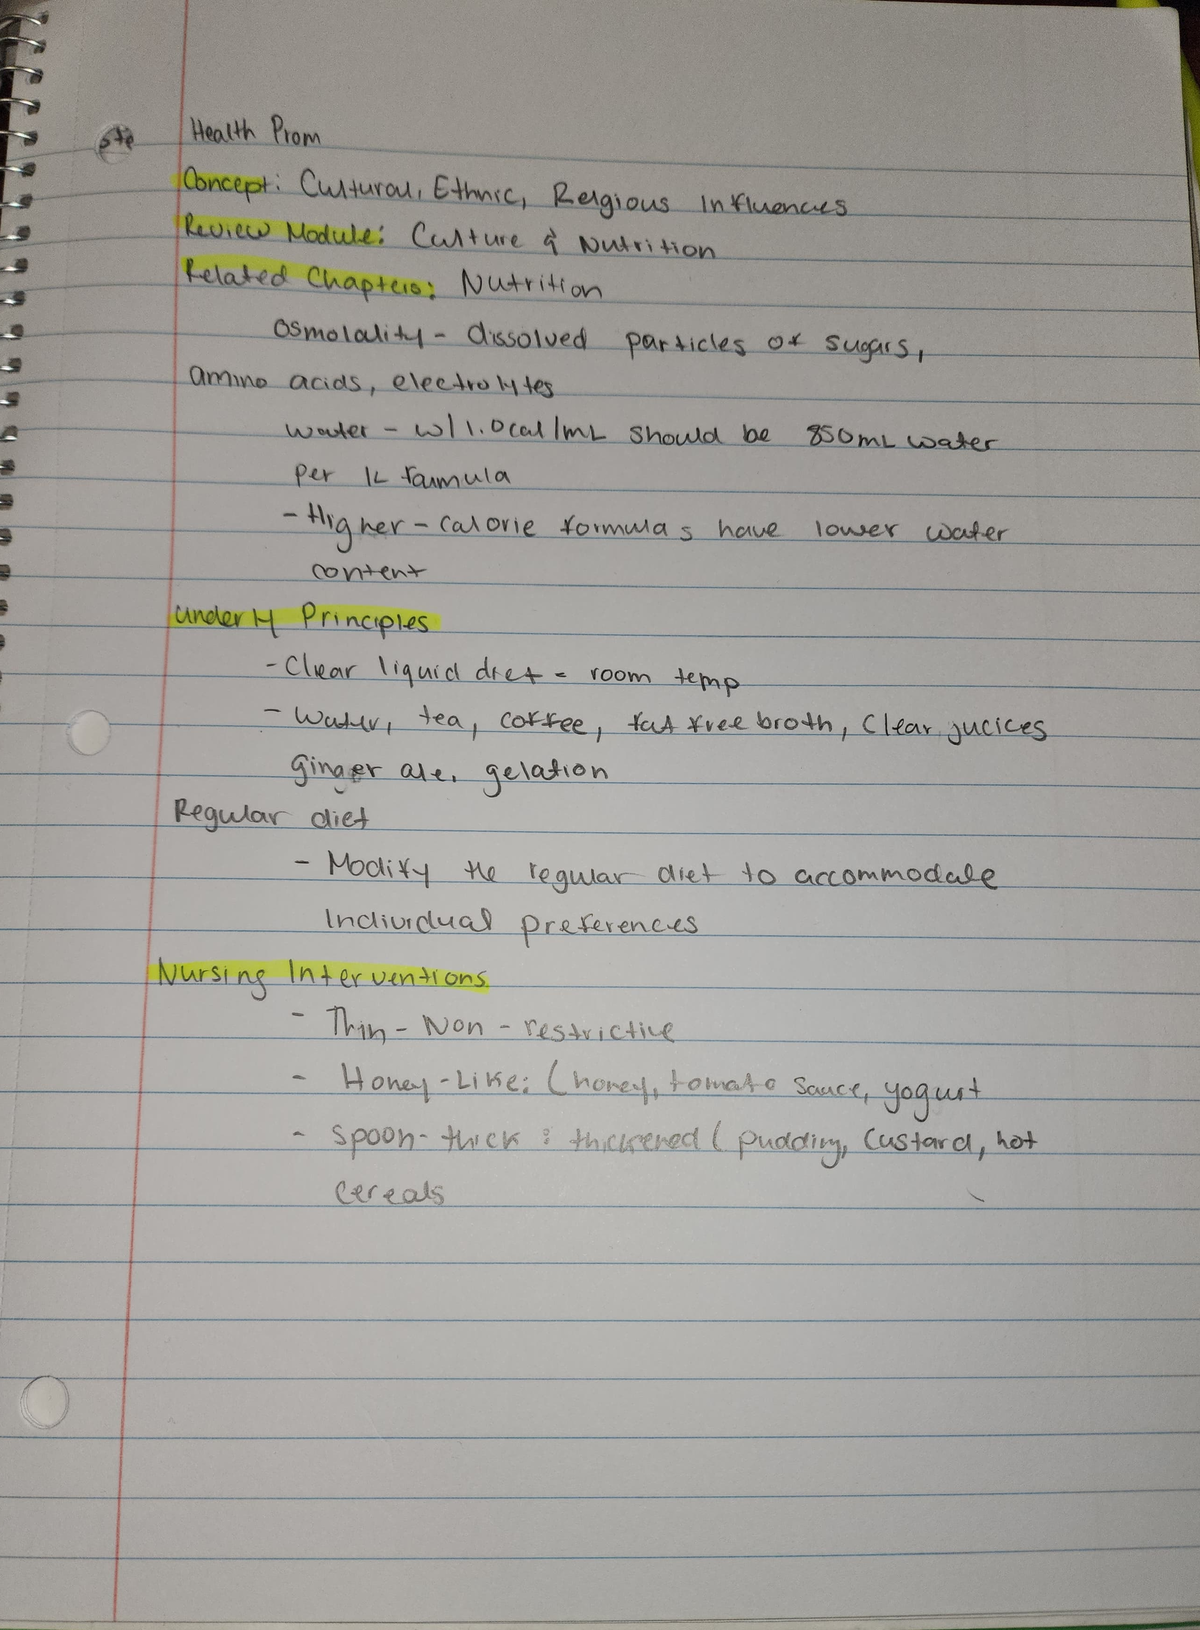 Health Prom
Concept: Cultural, Ethnic, Relgious Influences
Review Module: Culture & Nutrition
Related Chapters: Nutrition
osmolality - dissolved particles of sugars,
amino acids, electrolytes
water - w/1.0cal/mL should be 850mL water
per 1L formula
- Higher-calorie formulas have lower water
content
underly Principles
- Clear liquid diet = room temp
- water, tea, coffee, fat free broth, Clear jucices
ginger ale, gelation
Regular diet
- Modify the regular diet to accommodate
Individual preferences
Nursing Interventions
- Thin - Non - restrictive
- Honey-Like: (honey, tomato sauce, yogurt
- Spoon-thick: thickened (pudding, custard, hot
cereals